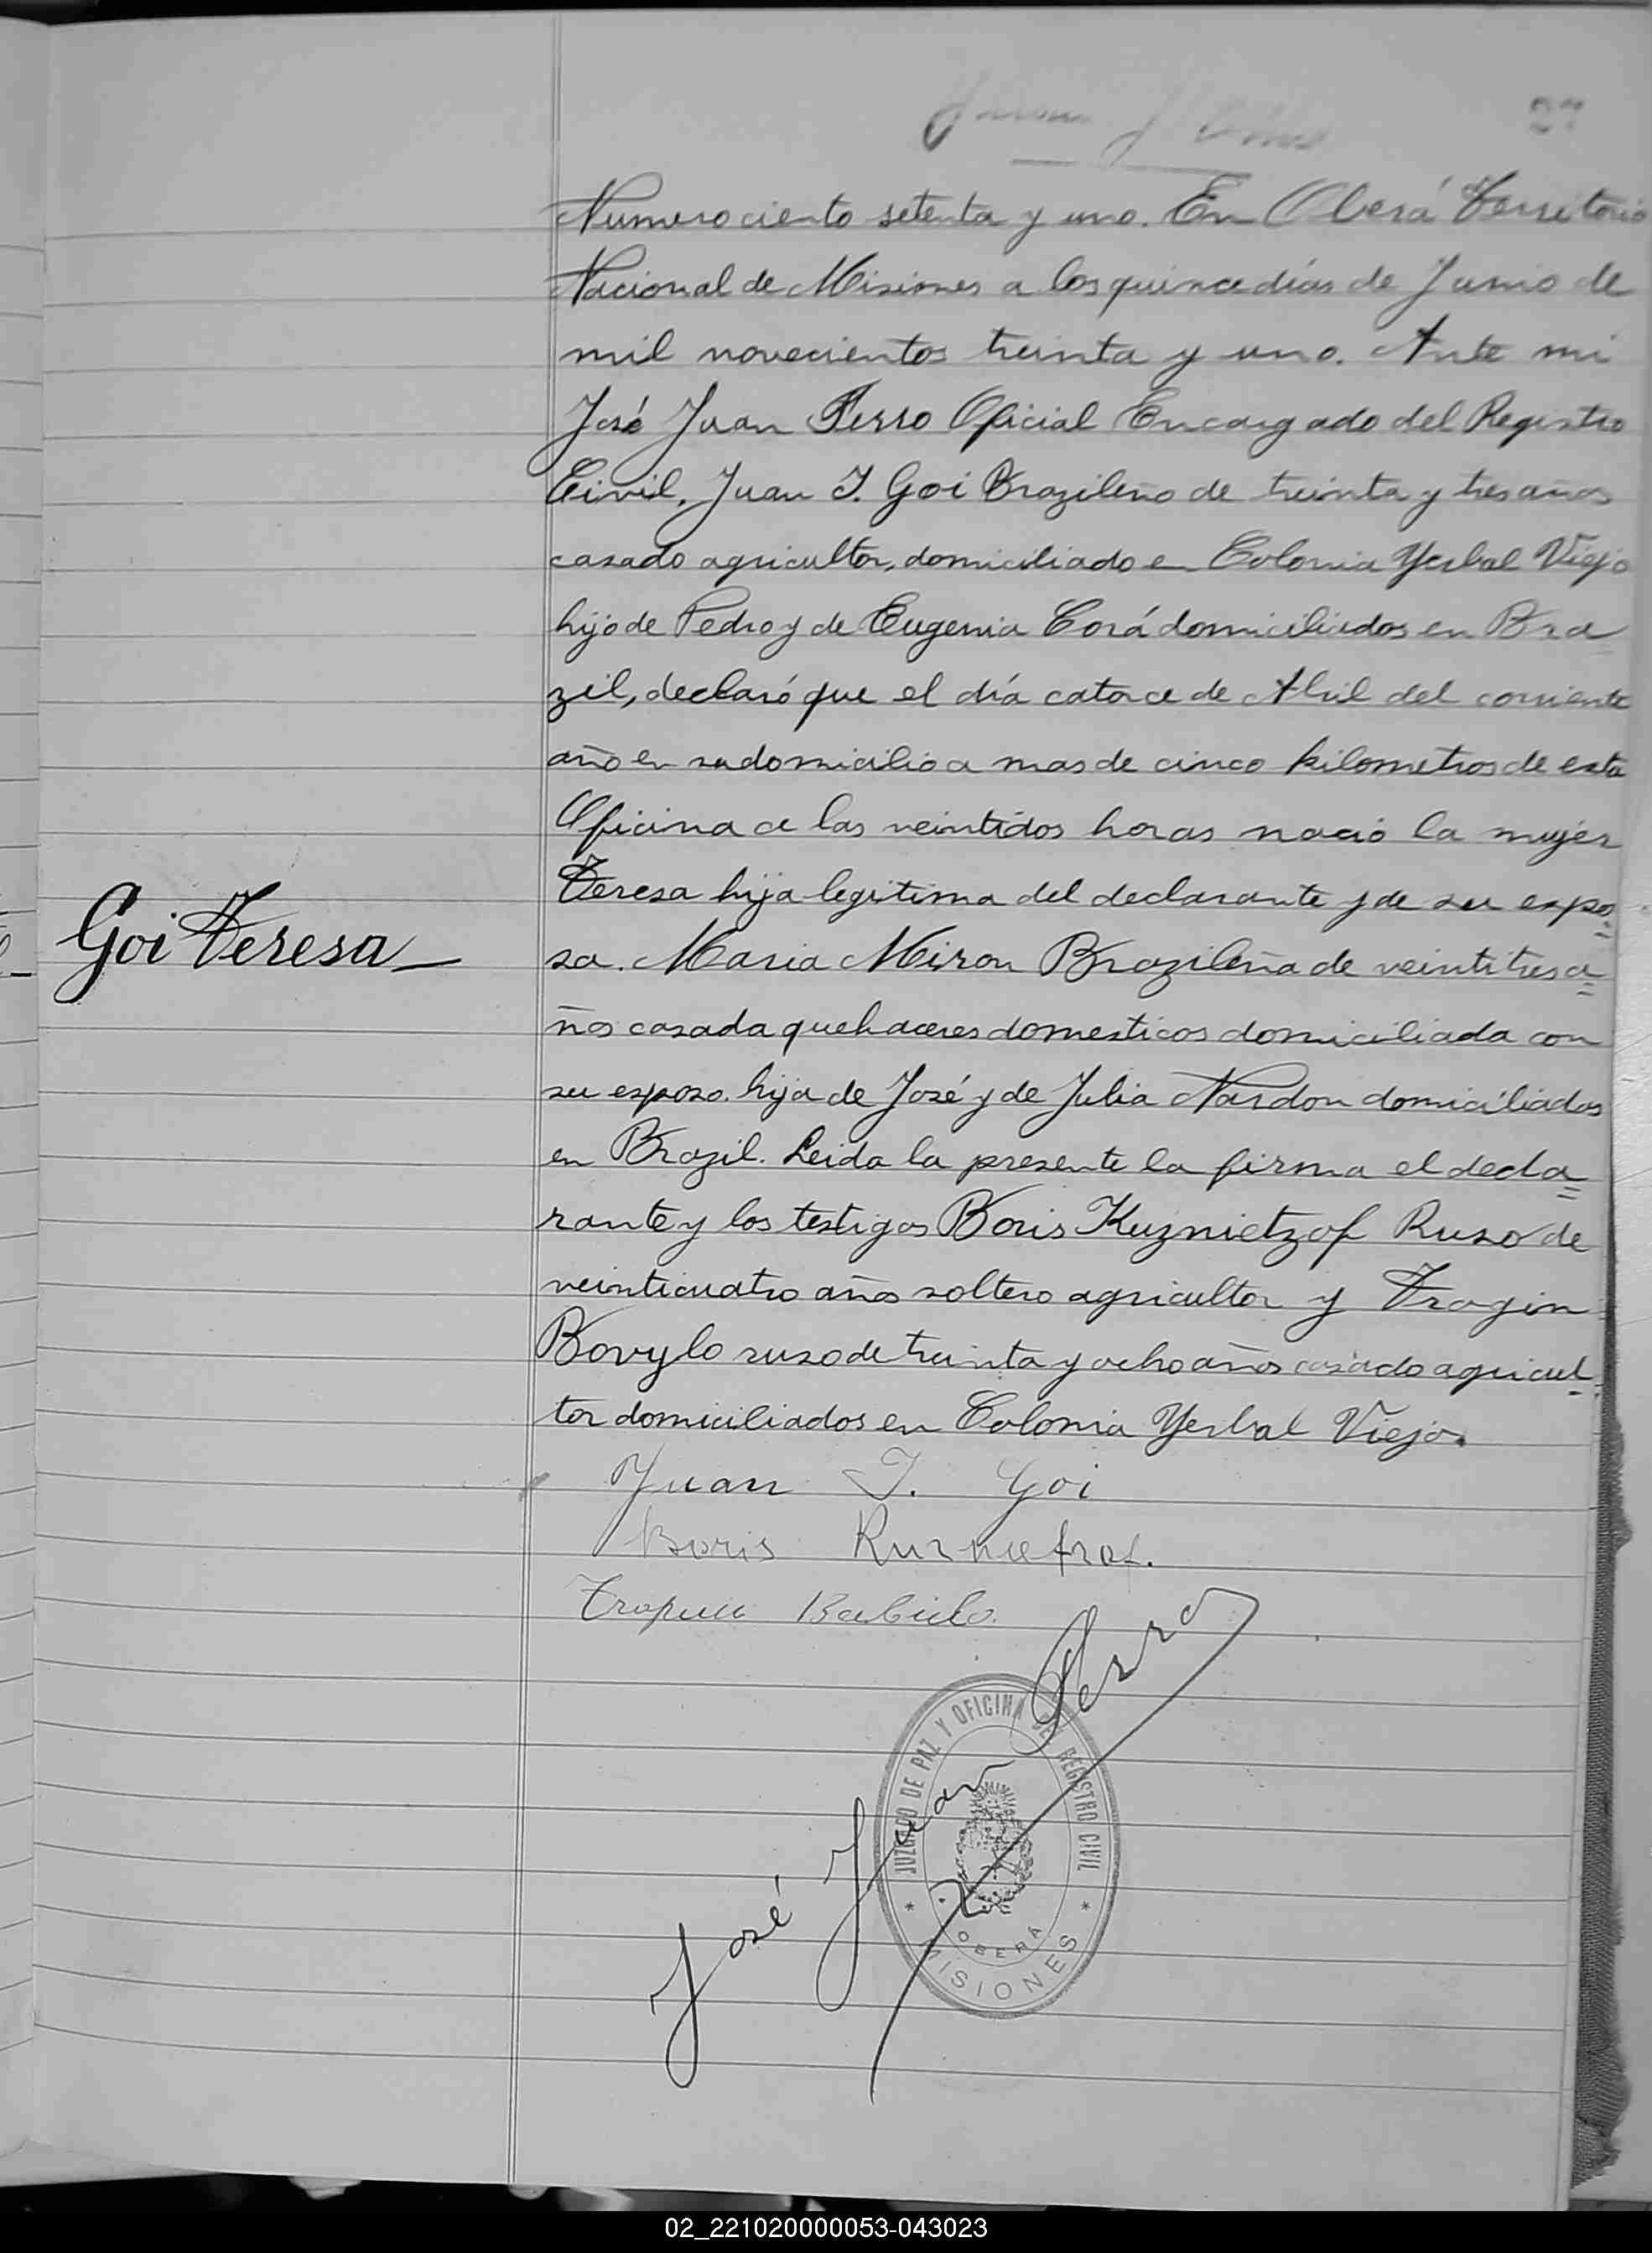 Numero ciento setenta y uno. En Oberá Territorio
Nacional de Misiones a los quince días de Junio de
mil novecientos treinta y uno. Ante mi
José Juan Ferro Oficial Encargado del Registro
Civil, Juan I. Goi Brazileño de treinta y tres años
casado agricultor, domiciliado en Colonia Yerbal Viejo
hijo de Pedro y de Eugenia Corá domiciliados en Bra
zil, declaró que el día catorce de Abril del corriente
año en su domicilio a mas de cinco kilometros de esta
Oficina a las veintidos horas nació la mujer
Teresa hija legitima del declarante y de su espo
Goi Teresa
sa. Maria Miron Brazileña de veintitres a
ños casada quehaceres domesticos domiciliada con
su esposo. hija de José y de Julia Nardon domiciliados
en Brazil. Leida la presente la firma el decla
rante y los testigos Boris Kuznietzof Ruso de
veinticuatro años soltero agricultor y Trogin
Bovylo ruso de treinta y ocho años casado agricul
tor domiciliados en Colonia Yerbal Viejo.
Juan I. Goi
Boris
José Juan Ferro
JUZGADO DE PAZ Y OFICINA DEL REGISTRO CIVIL
OBERÁ
* MISIONES *
02_221020000053-043023